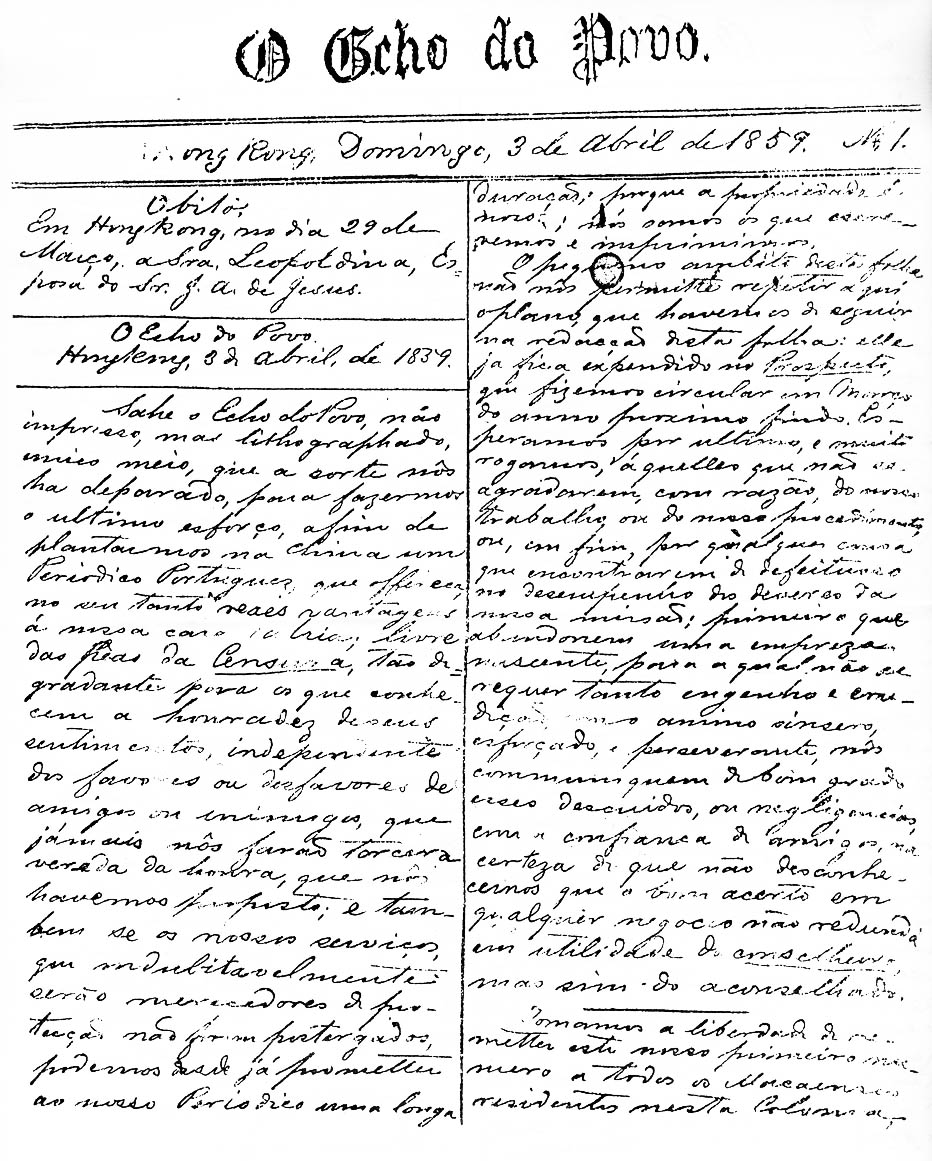 O Echo do Povo.
Hong Kong, Domingo, 3 de Abril de 1859. Nº 1.
Obito,
Em Hongkong, no dia 29 de
Março, a Sra. Leopoldina, Es-
posa do Sr. J. A. de Jesus.
O Echo do Povo.
Hongkong, 3 de Abril, de 1859.
Sahe o Echo do Povo, não
impresso, mas lithographado,
unico meio, que a sorte nôs
ha deparado, para fazermos
o ultimo esforço, afim de
plantarmos na China um
Periodico Portuguez, que offereça,
no seu tanto reaes vantagens
á nossa cara Patria; livre
das pêas da Censura, tão de-
gradante para os que conhe-
cem a honradez de seus
sentimentos, independente
dos favores ou desfavores de
amigos ou inimigos, que
jámais nôs farão torcer a
vereda da honra, que nôs
havemos proposto; e tam-
bem se os nossos serviços,
que indubitavelmente
serão merecedores de pro-
tecção não forem postergados,
podemos desde já prometter
ao nosso Periodico uma longa
duração; porque a propriedade é
nossa; nós somos os que escre-
vemos e imprimimos.
O pequeno ambito desta folha
não nôs permitte repetir aqui
o plano, que havemos de seguir
na redacção desta folha: elle
ja fica expendido no Prospecto,
que fizemos circular em Março
do anno proximo findo. Es-
peramos por ultimo, e muito
rogamos, áquelles que não se
agradarem, com razão, do nosso
trabalho, ou do nosso procedimento,
ou, em fim, por qualquer cousa
que encontrarem de defeituoso
no desempenho dos deveres da
nossa missão; primeiro que
abandonem uma empreza
nascente, para a qual não se
requer tanto engenho e eru-
dição como animo sincero,
esforçado, e perseverante, nôs
communiquem de bom grado
esses descuidos, ou negligencias,
com a confiança de amigos, na
certeza de que não desconhe-
cemos que o bom acerto em
qualquer negocio não redunda
em utilidade do conselheiro,
mas sim do aconselhado.
Tomamos a liberdade de re-
metter este nosso primeiro nu-
mero a todos os Macaenses
residentes nesta Colonia,